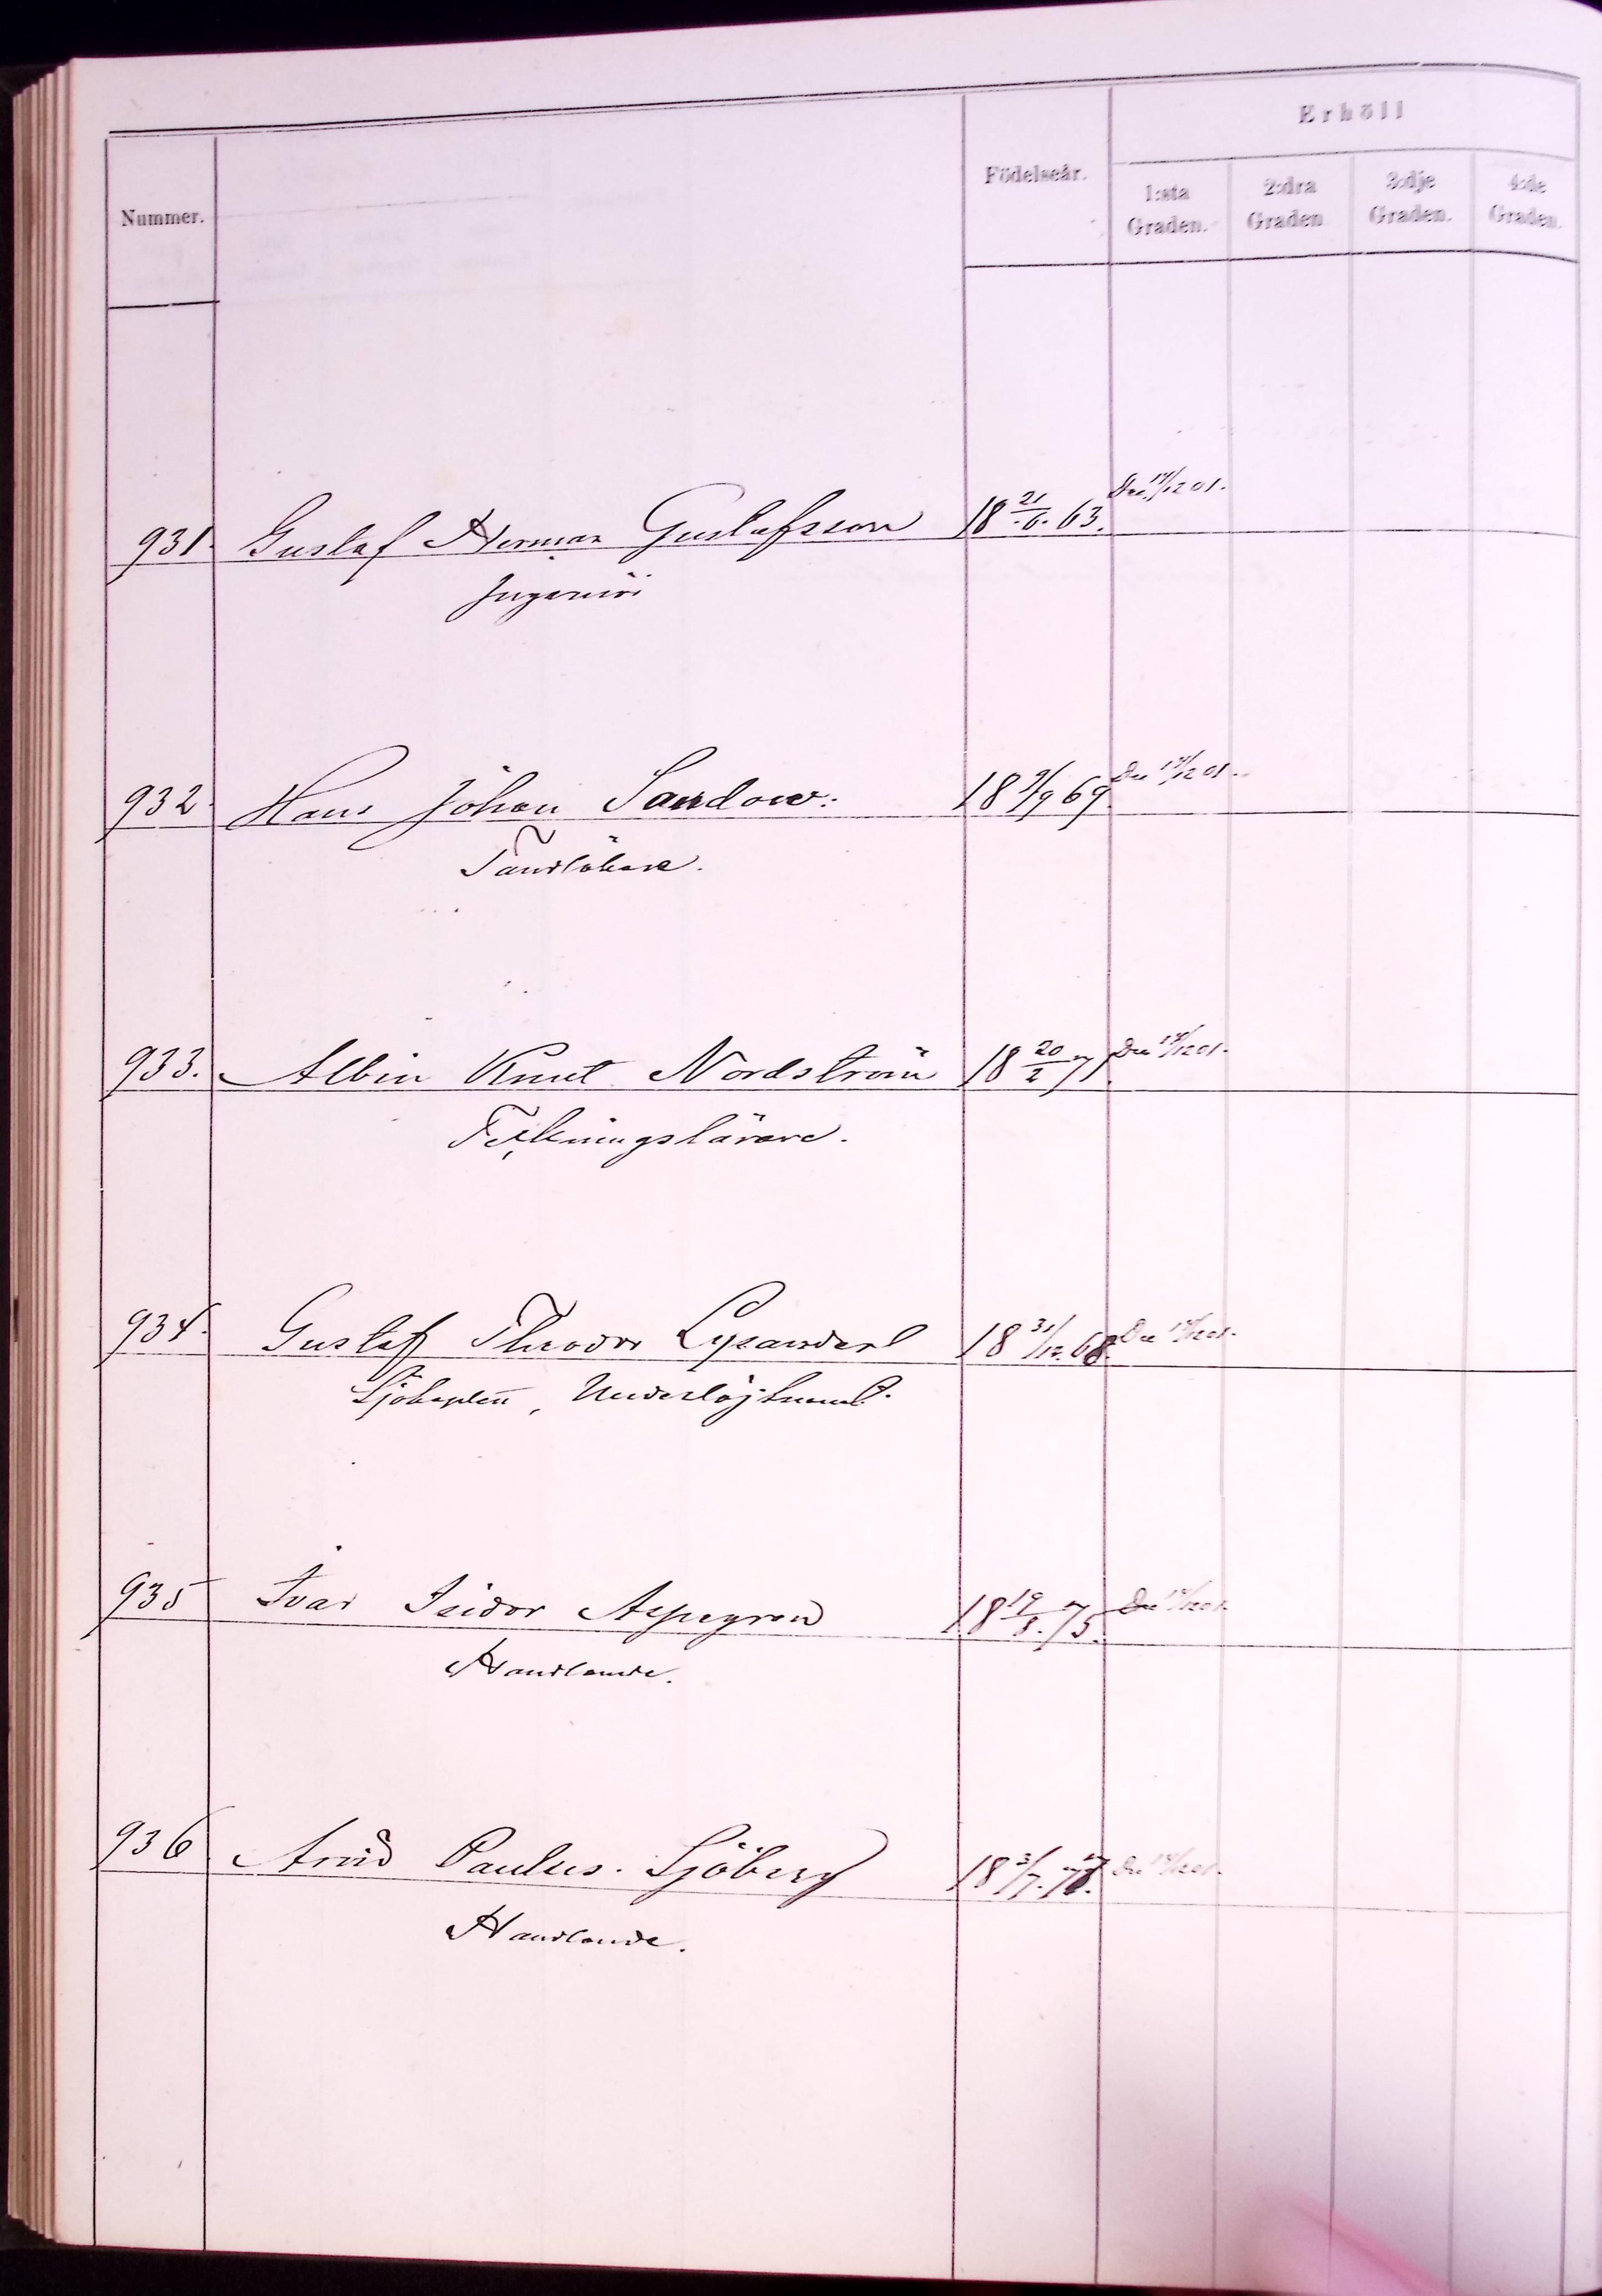 Erhöll
Nummer. Födelseår. 1:sta Graden. 2:dra Graden 3:dje Graden. 4:de Graden.
931. Gustaf Herman Gustafsson 18 21/6. 63. Den 14/12 01.
Ingeniör
932. Hans Johan Sandow. 18 9/9 69. Den 14/12 01.
Tandläkare.
933. Albin Knut Nordström 18 20/2 71. Den 14/12 01.
Teckningslärare.
934. Gustaf Theodor Lysander 18 31/12. 68. Den 14/12 01.
Sjökapten, Underlöjtnant.
935 Ivar Isidor Aspegren 18 19/8. 75. Den 14/12 01.
Handlande.
936 Arvid Paulus Sjöberg 18 3/7. Den 14/12 01.
Handlande.